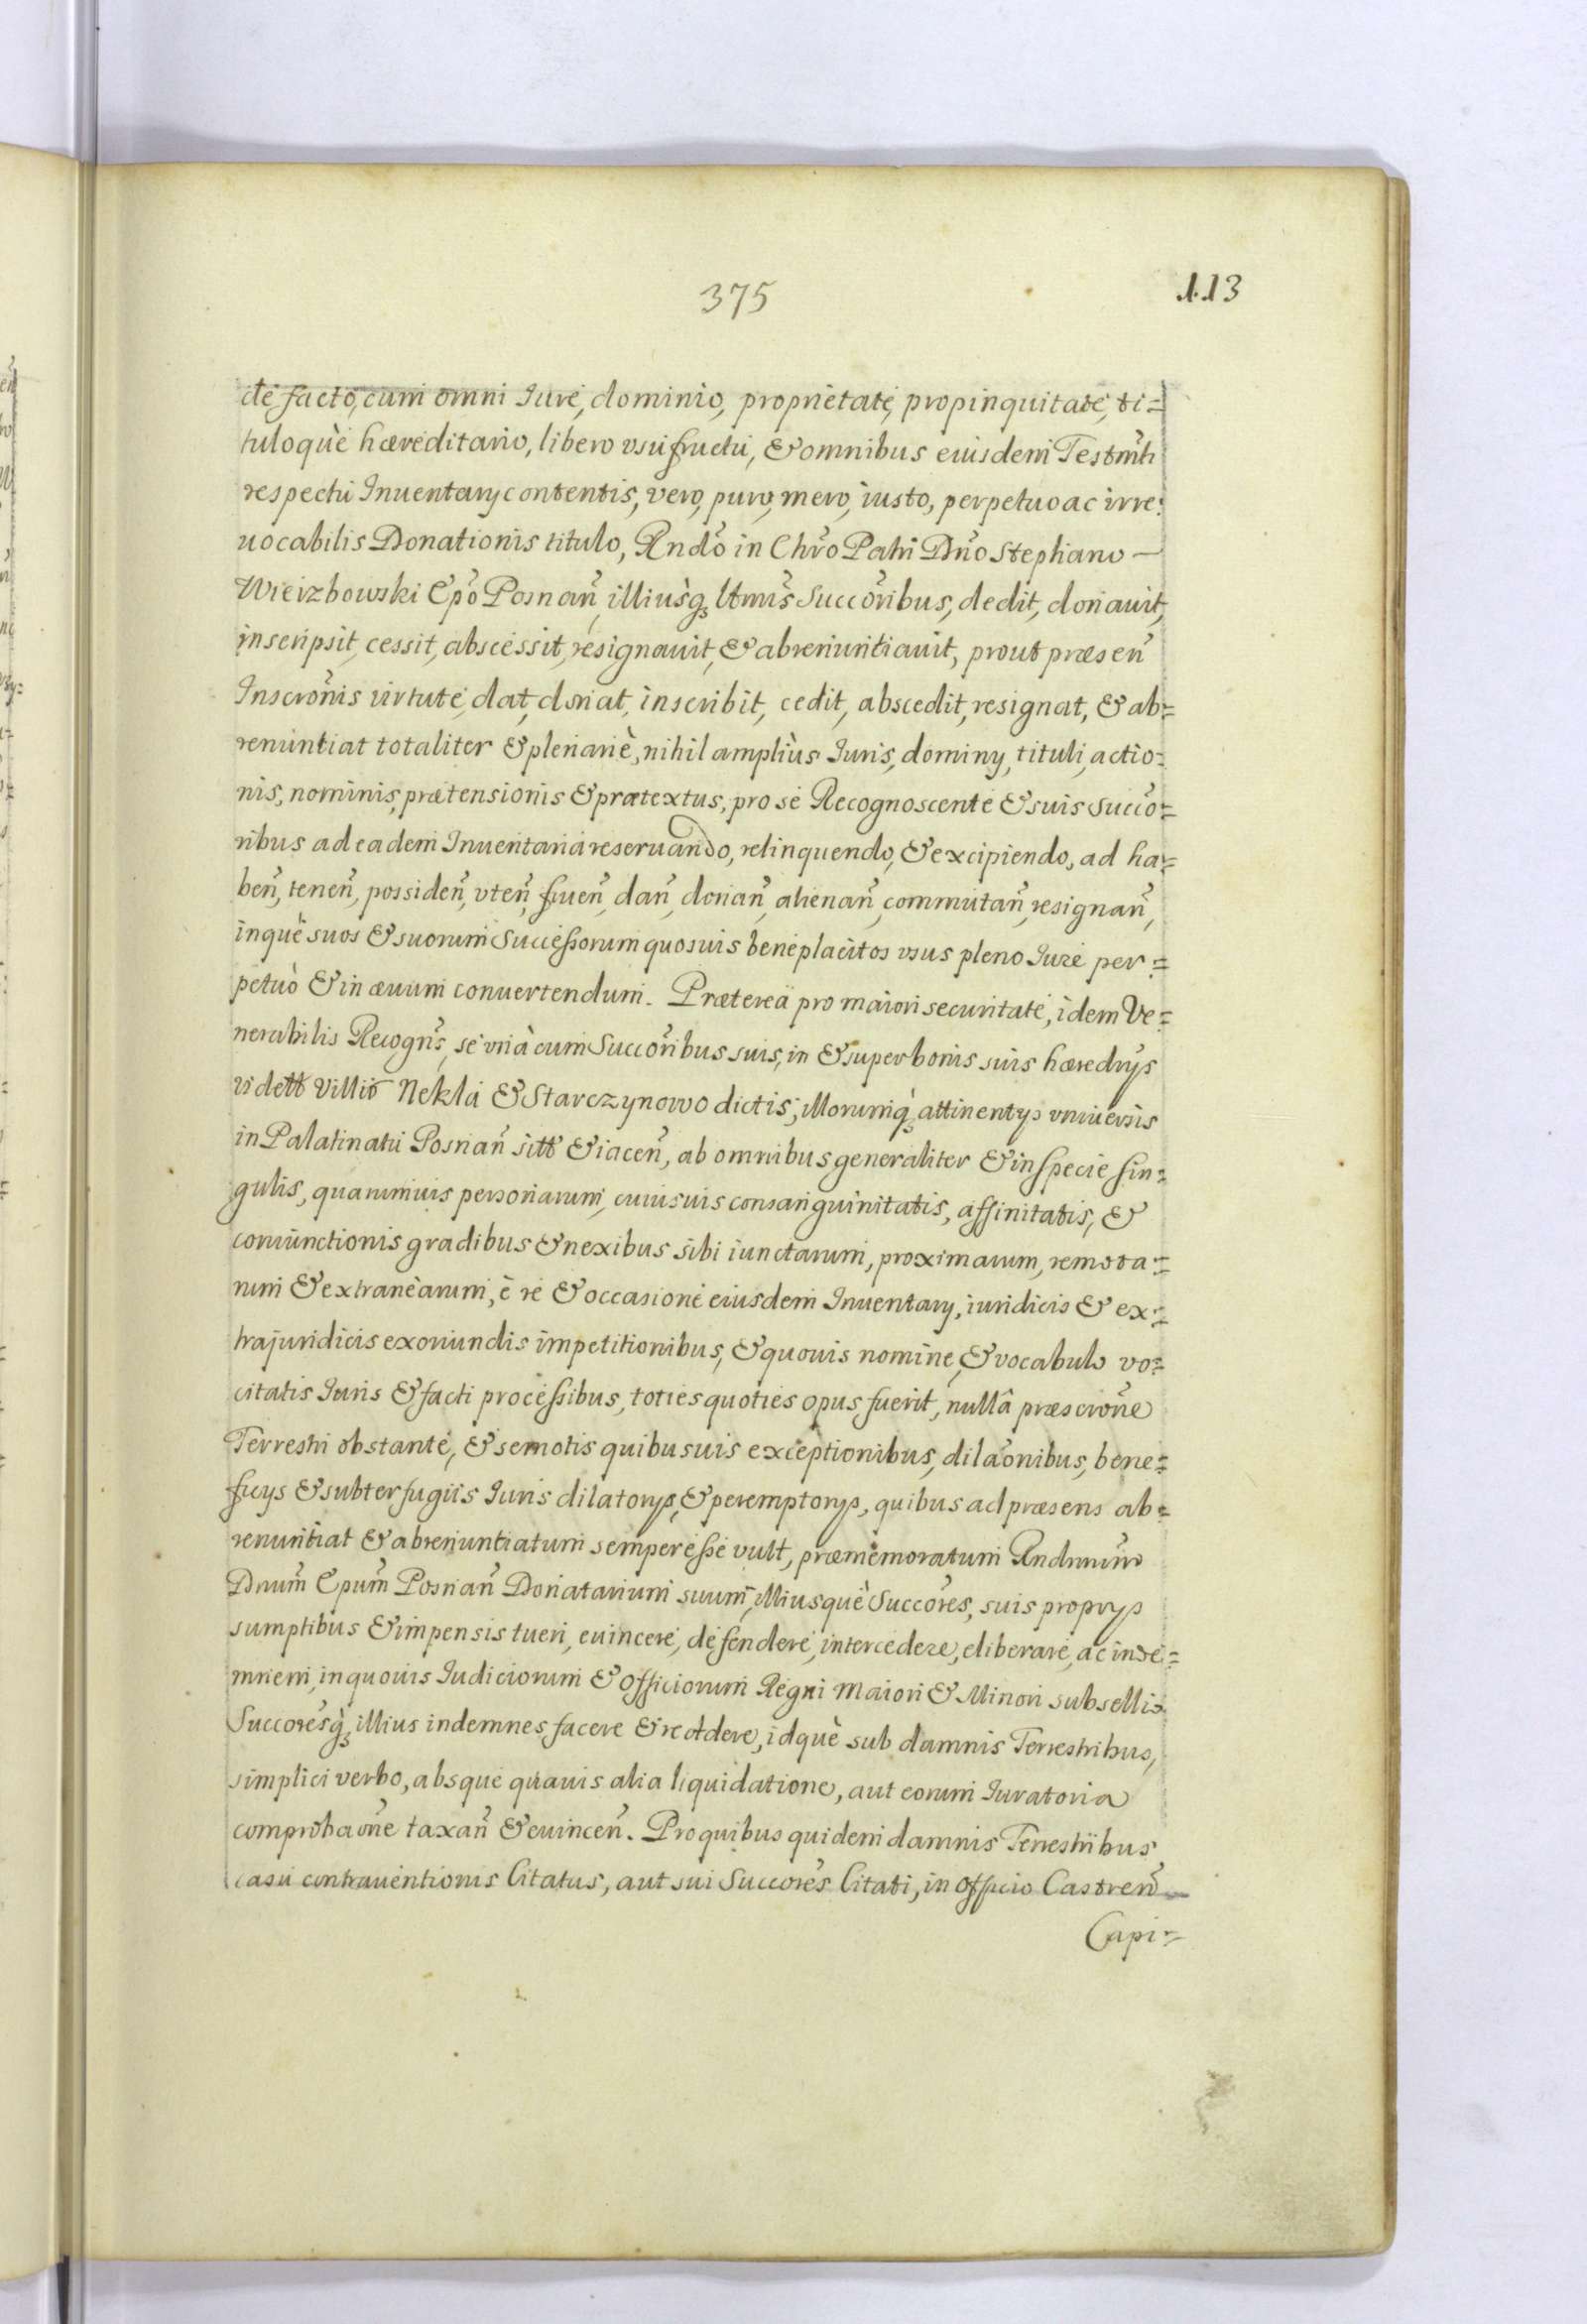 375
113
de facto, cum omni Iure, dominio, proprietate, propinquitate, ti=
tuloquè hæreditario, libero vsufructu, & omnibus eiusdem Testm̃ti
respectu Inuentary contentis, vero, puro, mero, iusto, perpetuo ac irre=
uocabilis Donationis titulo, Rñdo in Chr̃o Patri Dño Stephano —
Wieizbowski Ep̃o Posnañ, illiusq̀ꝫ ltmĩs Succor̃ibus, dedit, donauit,
inscripsit, cessit, abscessit, resignauit, & abrenuntiauit, prout præseñ
Inscrõnis virtute, dat, donat, inscribit, cedit, abscedit, resignat, & ab=
renuntiat totaliter & plenariè, nihil ampliùs Iuris, dominy, tituli, actio=
nis, nominis, prætensionis & prætextus, pro se Recognoscente & suis Succo=
ribus ad eadem Inuentaria reseruando, relinquendo, & excipiendo, ad ha=
beñ, teneñ, possideñ, vteñ, frueñ, dañ, donañ, alienañ, commutañ, resignañ,
inquè suos & suorum Successorum quosuis beneplacitos vsus pleno Iure per=
petuò & in æuum conuertendum. Præterea pro maiori securitate, idem Ve=
nerabilis Recogñs, se vnà cum Succor̃ibus suis, in & super bonis suis hæredrys
vidett Villis Nekla & Starczynowo dictis, illorumq̀ꝫ attinentys vniuersis
in Palatinatu Posnañ sitt & iaceñ, ab omnibus generaliter & in specie sin=
gulis, quarumuis personarum, cuiusuis consanguinitatis, affinitatis, &
coniunctionis gradibus & nexibus sibi iunctarum, proximarum, remota=
rum & extranearum, è re & occasione eiusdem Inuentary, iuridicis & ex=
trajuridicis exoriundis impetitionibus, & quouis nomine, & vocabulo vo=
citatis Iuris & facti processibus, toties quoties opus fuerit, nullâ præscrõne
Terrestri obstante, & semotis quibusuis exceptionibus, dilaõnibus, bene=
ficys & subterfugiis Iuris dilatorys, & peremptorys, quibus ad præsens ab=
renuntiat & abrenuntiatum semper esse vult, præmemoratum Rndmum̃
Dnum̃ Epum̃ Posnañ Donatarium suum, illiusquè Succor̃es, suis proprys
sumptibus & impensis tueri, euincere, defendere, intercedere, eliberare, ac inde=
mnem, in quouis Iudiciorum & Officiorum Regni Maiori & Minori subsellio
Succor̃esq̀ꝫ illius indemnes facere & reddere, idquè sub damnis Terrestribus,
simplici verbo, absque quauis alia liquidatione, aut eorum Iuratoria
comprobaõne taxañ & euinceñ. Pro quibus quidem damnis Terrestribus
casu contrauentionis Citatus, aut sui Succor̃es Citati, in Officio Castreñ
Capi=